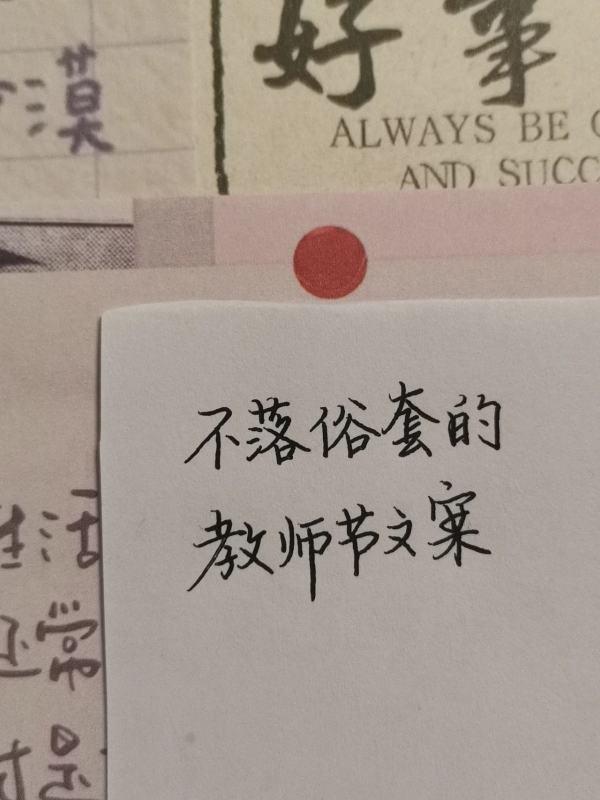 漠
好事
ALWAYS BE
AND SUCC
不落俗套的
教师节文案
生活
常